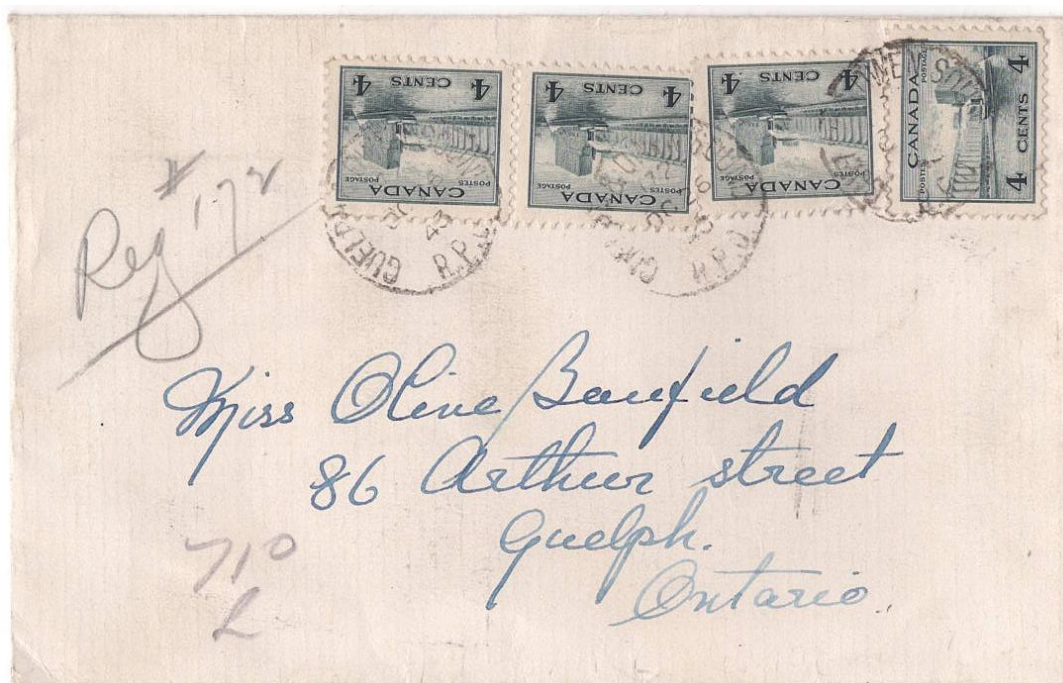 4 CENTS 4
POSTES POSTAGE
CANADA
4 CENTS 4
POSTES POSTAGE
CANADA
4 CENTS 4
POSTES POSTAGE
CANADA
POSTES POSTAGE
CANADA
4 CENTS 4
43
R.P.O.
R.P.O.
Reg # 172
Miss Olive Banfield
86 Arthur street
Guelph.
Ontario.
710
L